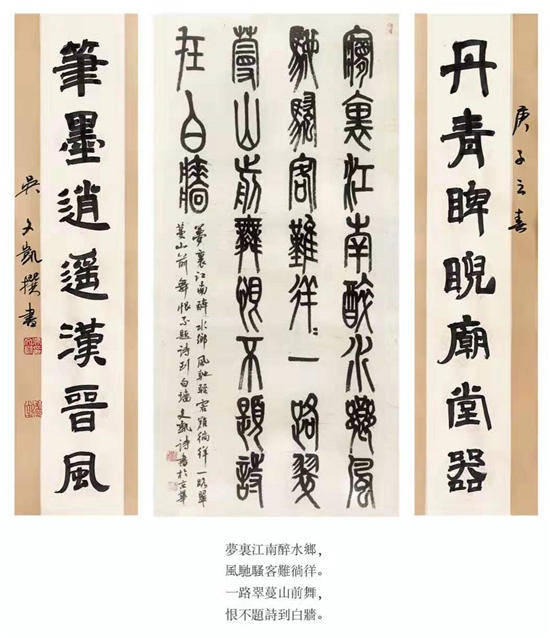 庚子立春
丹青睥睨廟堂器
夢裏江南醉水鄉風
馳騷客難徜徉一路翠
蔓山前舞恨不題詩
在白牆
夢裏江南醉水鄉風馳騷客難徜徉一路翠
蔓山前舞恨不題詩到白墻文凱詩書於京華
筆墨逍遥漢晉風
吳文凱撰書
夢裏江南醉水鄉，
風馳騷客難徜徉。
一路翠蔓山前舞，
恨不題詩到白牆。